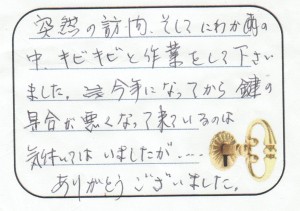 突然の訪問、そしてにわか雨の
中、キビキビと作業をして下さい
ました。今年になってから鍵の
具合が悪くなって来ているのは
気付いてはいましたが、…
ありがとうございました。